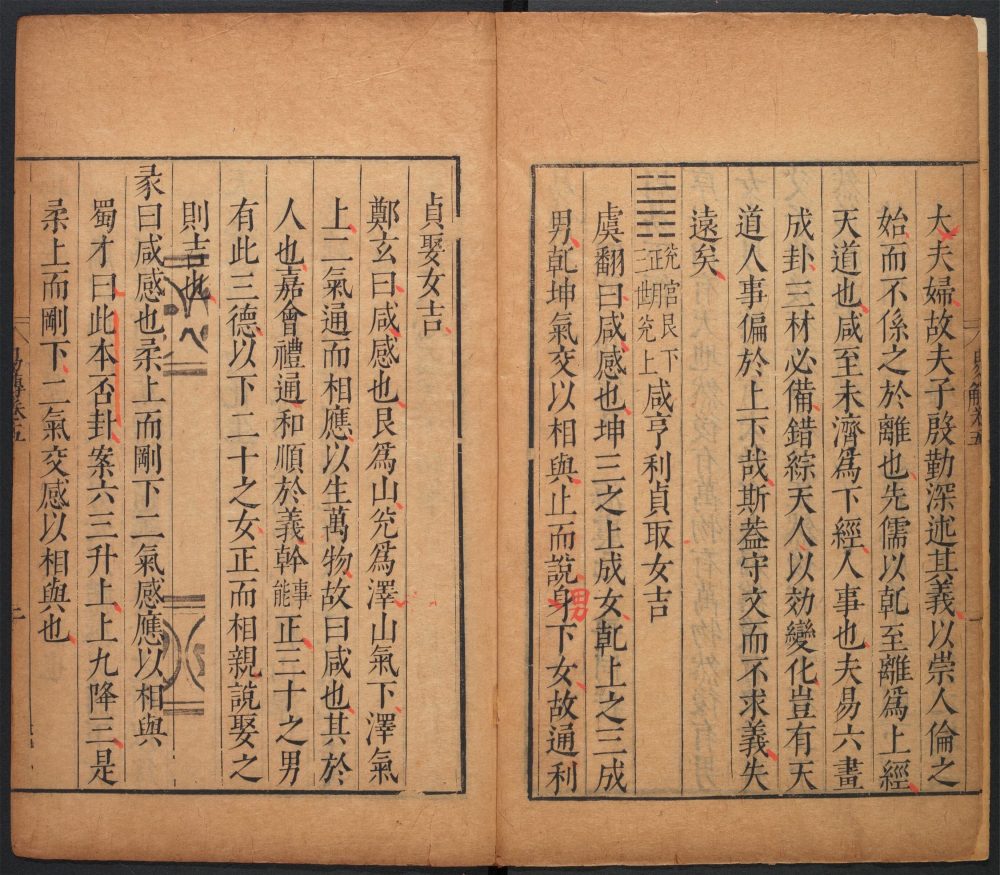 大夫婦故夫子殷勤深述其義以崇人倫之
始而不係之於離也先儒以乹至離爲上經
天道也咸至未濟爲下經人事也夫易六畫
成卦三材必備錯綜天人以効變化豈有天
道人事偏於上下哉斯葢守文而不求義失
遠矣
兊宫艮下
正月
三世兊上
咸亨利貞取女吉
虞翻曰咸感也坤三之上成女乹上之三成
男乾坤氣交以相與止而說身下女故通利
男
貞娶女吉
鄭玄曰咸感也艮爲山兊爲澤山氣下澤氣
上二氣通而相應以生萬物故曰咸也其於
人也嘉會禮通和順於義幹事能正三十之男
有此三德以下二十之女正而相親說娶之
則吉也
彖曰咸感也柔上而剛下二氣感應以相與
蜀才曰此本否卦案六三升上上九降三是
柔上而剛下二氣交感以相與也
二